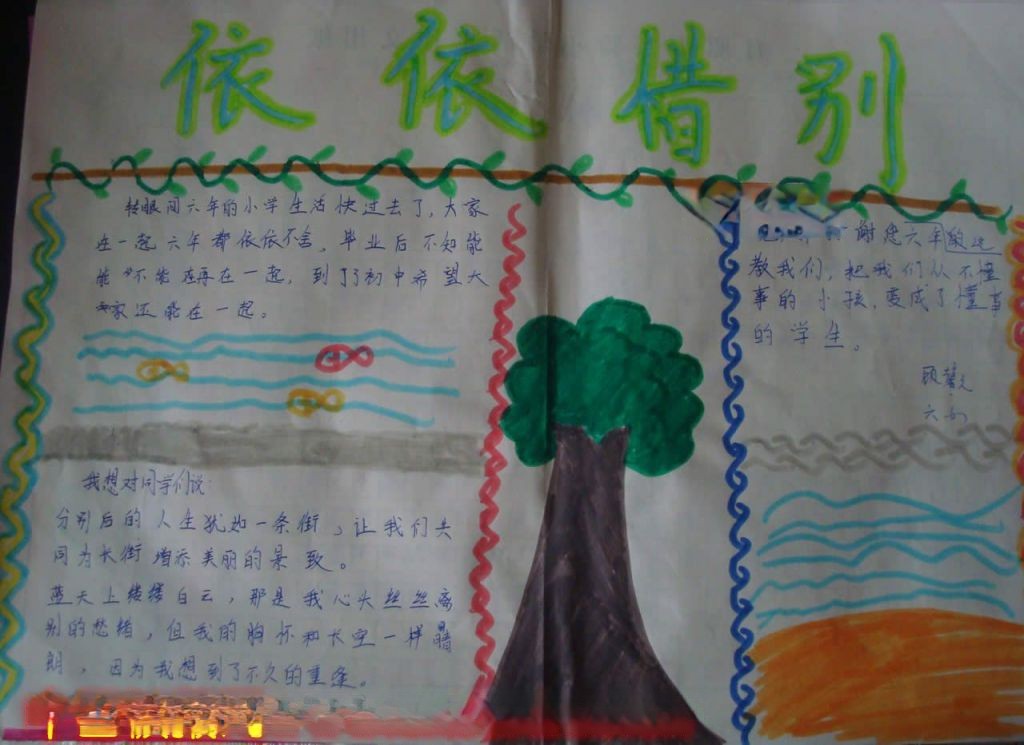 依依惜别
转眼间六年的小学生活快过去了，大家
在一起六年都依依不舍，毕业后不知能
能不能再在一起，到了初中希望大
家还能在一起。
我想对同学们说：
分别后的人生犹如一条街，让我们共
同为长街增添美丽的景致。
蓝天上缕缕白云，那是我心头丝丝离
别的愁绪，但我的胸怀和长空一样晴
朗，因为我想到了不久的重逢。
谢您六年
教我们，把我们从不懂
事的小孩，变成了懂事
的学生。